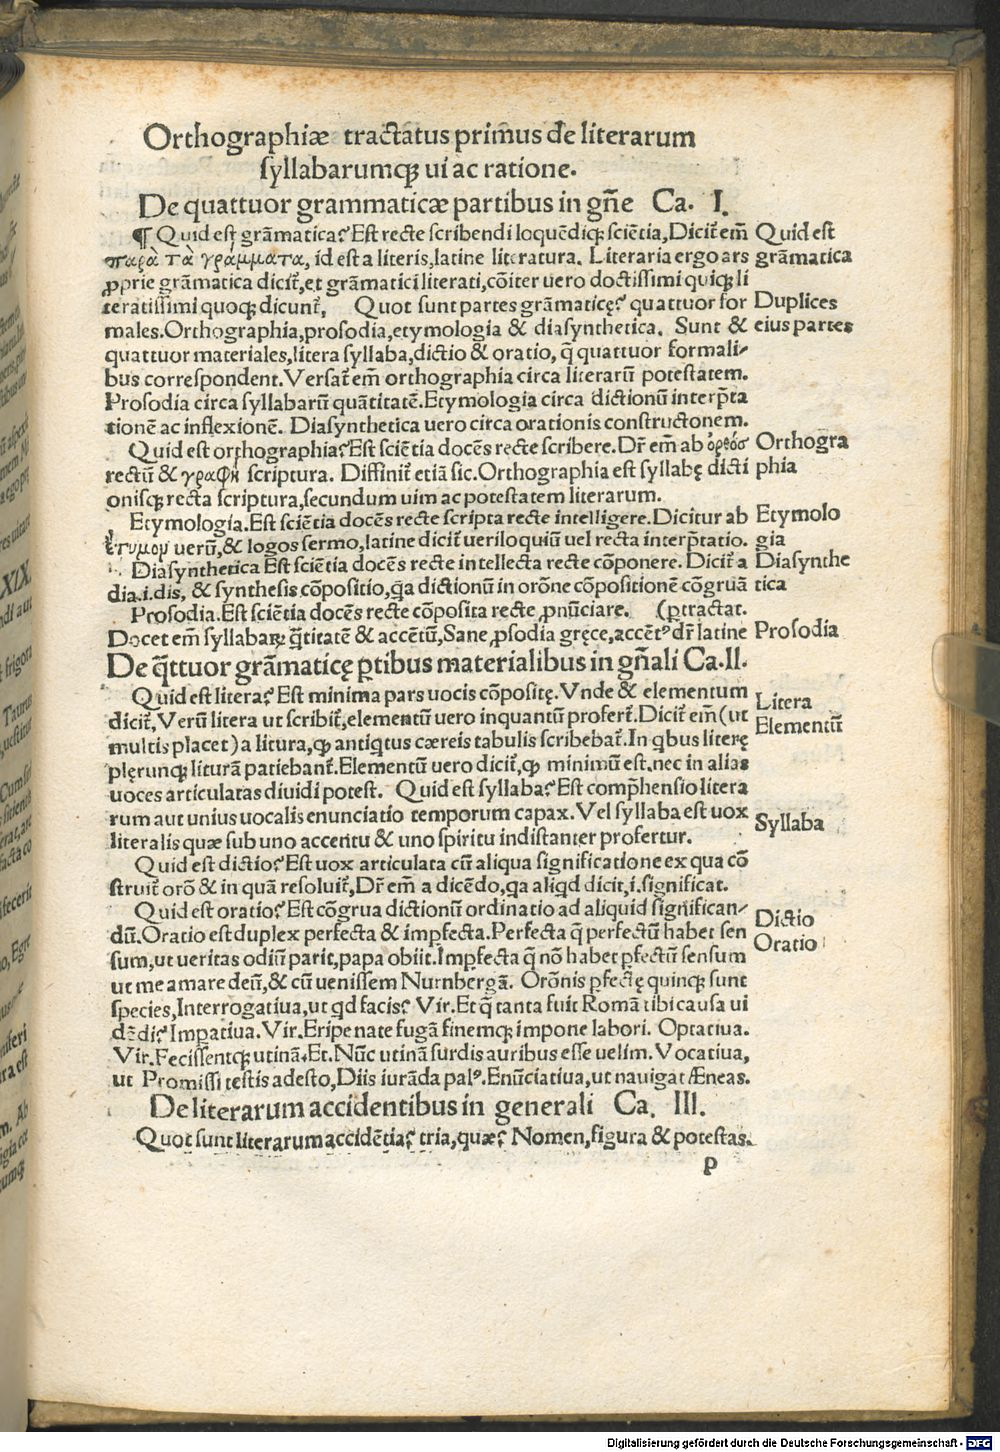 Orthographiæ tractatus primus de literarum
syllabarumqꝫ ui ac ratione.
De quattuor grammaticæ partibus in gn̄e Ca. I.
¶ Quid est grāmatica? Est recte scribendi loquēdiqꝫ sciētia, Dicit᷑ em̄ Quid est
παρὰ τὰ γράμματα, id est a literis, latine literatura. Literaria ergo ars grāmatica
ꝓprie grāmatica dicit᷑, et grāmatici literati, cōiter uero doctissimi quiqꝫ li
teratissimi quoqꝫ dicunt᷑. Quot sunt partes grāmaticę? quattuor for Duplices
males. Orthographia, prosodia, etymologia & diasynthetica. Sunt & eius partes
quattuor materiales, litera syllaba, dictio & oratio, q̄ quattuor formali-
bus correspondent. Versat᷑ em̄ orthographia circa literarū potestatem.
Prosodia circa syllabarū quātitatē. Etymologia circa dictionū interp̄ta
tionē ac inflexionē. Diasynthetica uero circa orationis constructonem.
Quid est orthographia? Est sciētia docēs recte scribere. Dr̄ em̄ ab ὀρθόσ Orthogra
rectū & γραφὴ scriptura. Diffinit᷑ etiā sic. Orthographia est syllabę dicti phia
onisqꝫ recta scriptura, secundum uim ac potestatem literarum.
Etymologia. Est sciētia docēs recte scripta recte intelligere. Dicitur ab Etymolo
ἔτυμον uerū, & logos sermo, latine dicit᷑ ueriloquiū uel recta interp̄tatio. gia
Diasynthetica Est sciētia docēs recte intellecta recte cōponere. Dicit᷑ a Diasynthe
dia .i. dis, & synthesis cōpositio, q̄a dictionū in orōne cōpositionē cōgruā tica
Prosodia. Est sciētia docēs recte cōposita recte ꝓnūciare. (ꝑtractat.
Docet em̄ syllabaꝝ q̄titatē & accētū, Sane ꝓsodia gręce, accētꝰ dr̄ latine Prosodia
De q̄ttuor grāmaticę ꝑtibus materialibus in gn̄ali Ca. II.
Quid est litera? Est minima pars uocis cōpositę. Vnde & elementum
Litera
dicit᷑, Verū litera ut scribit᷑, elementū uero inquantū profert᷑. Dicit᷑ em̄ (ut
Elementū
multis placet) a litura, ꝙ antiqtus cæreis tabulis scribebat᷑. In qbus literę
plęrunqꝫ liturā patiebant᷑. Elementū uero dicit᷑, ꝙ minimū est. nec in alias
uoces articulatas diuidi potest. Quid est syllaba? Est comp̄hensio litera
rum aut unius uocalis enunciatio temporum capax. Vel syllaba est uox
Syllaba
literalis quæ sub uno accentu & uno spiritu indistanter profertur.
Quid est dictio? Est uox articulata cū aliqua significatione ex qua cō
struit᷑ orō & in quā resoluit᷑, Dr̄ em̄ a dicēdo, qa aliqd dicit, i. significat.
Quid est oratio? Est cōgrua dictionū ordinatio ad aliquid significan-
Dictio
dū. Oratio est duplex perfecta & imꝑfecta. Perfecta q̄ perfectū habet sen
Oratio
sum, ut ueritas odiū parit, papa obiit. Imꝑfecta q̄ nō habet ꝑfectū sensum
ut me amare deū, & cū uenissem Nurnbergā. Orōnis ꝑfectę quinqꝫ sunt
species, Interrogatiua, ut qd facis? Vir. Et q̄ tanta fuit Romā tibi causa ui
dēdi? Imꝑatiua. Vir. Eripe nate fugā finemqꝫ impone labori. Optatiua.
Vir. Fecissentqꝫ utinā. Et. Nūc utinā surdis auribus esse uelim. Vocatiua,
ut Promissi testis adesto, Diis iurāda palꝰ. Enūciatiua, ut nauigat Æneas.
De literarum accidentibus in generali Ca. III.
Quot sunt literarum accidētia? tria, quæ? Nomen, figura & potestas.
p
Digitalisierung gefördert durch die Deutsche Forschungsgemeinschaft - DFG